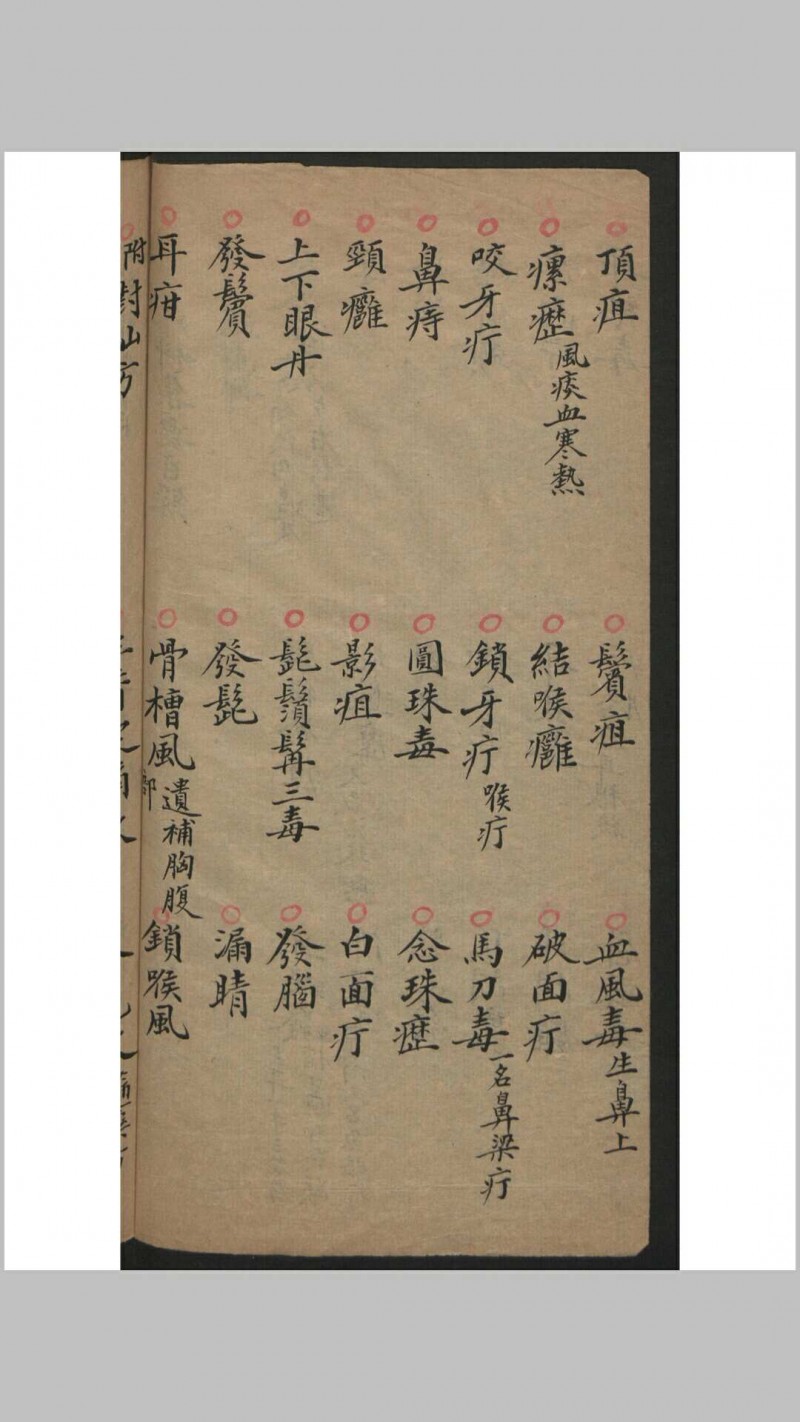 頂疽
鬢疽
血風毒生鼻上
瘰癧風痰血寒熱
結喉癰
破面疔
咬牙疔
鎖牙疔喉疔
馬刀毒一名鼻梁疔
鼻痔
圓珠毒
念珠癧
頸癰
影疽
白面疔
上下眼丹
髭鬚髯三毒
發腦
發鬢
發髭
漏睛
耳疳
骨槽風遺補胸腹
鎖喉風
附